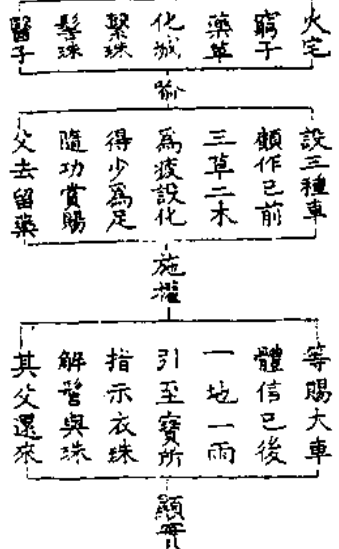 火宅
窮子
藥草
化城
繫珠
髻珠
醫子
喻
設三種車
領付已前
三草二木
為疲設化
得少為足
隨功賞賜
父去留藥
施權
等賜大車
體信已後
一地一雨
引至寶所
指示衣珠
解髻與珠
其父還來
顯實